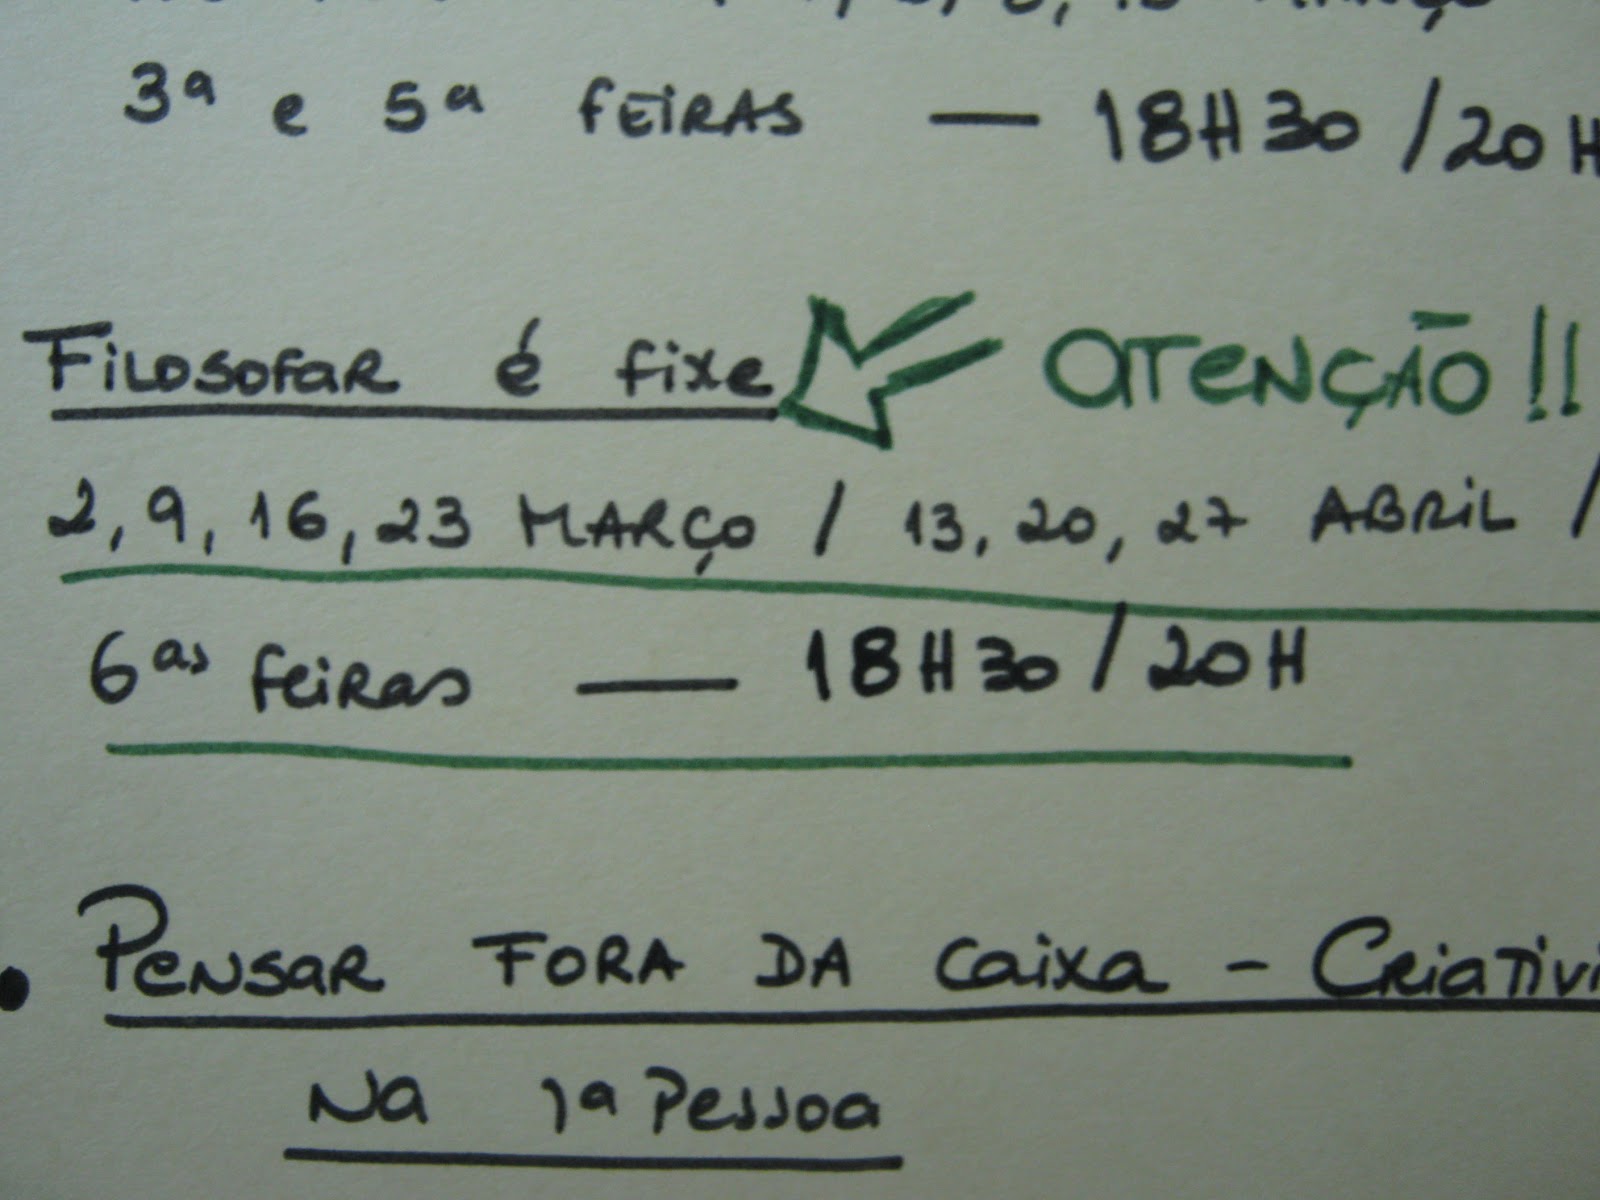 3ª e 5ª FEIRAS — 18H30 / 20H
Filosofar é fixe ATENÇÃO!!
2, 9, 16, 23 MARÇO / 13, 20, 27 ABRIL /
6as feiras — 18H30 / 20H
• Pensar FORA DA caixa - Criativi
Na 1ª Pessoa